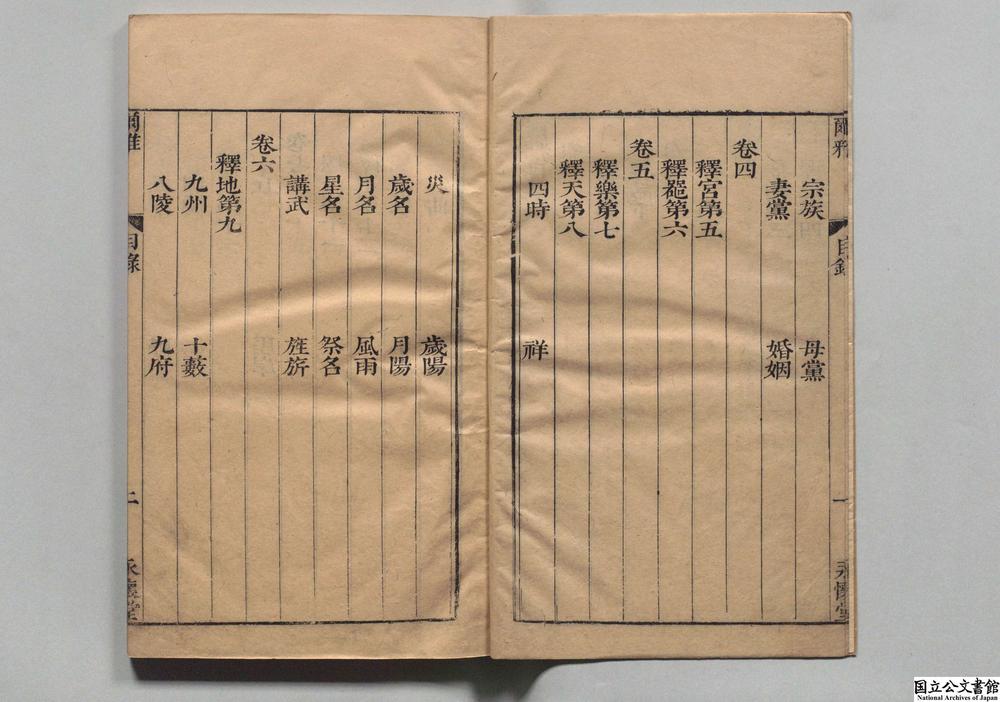 爾雅
目錄
一
永懷堂
宗族
母黨
妻黨
婚姻
卷四
釋宮第五
釋器第六
卷五
釋樂第七
釋天第八
四時
祥
災
歲陽
歲名
月陽
月名
風雨
星名
祭名
講武
旌旂
卷六
釋地第九
九州
十藪
八陵
九府
爾雅
目錄
二
永懷堂
国立公文書館
National Archives of Japan